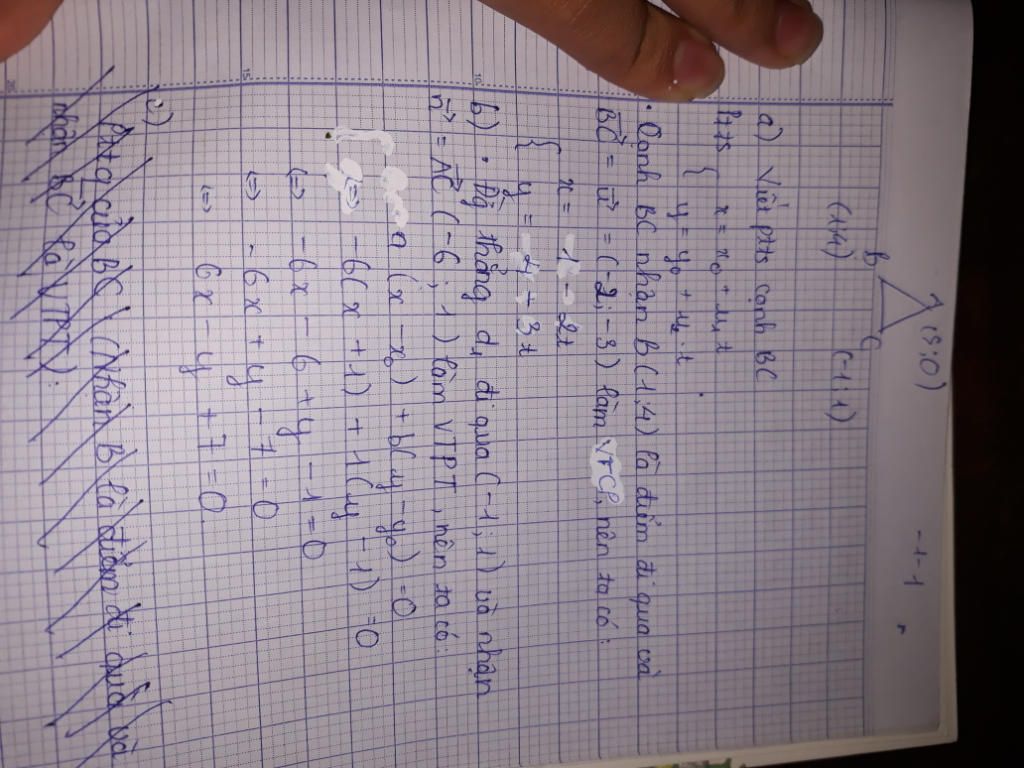 - 1 - 1
A (5;0)
B
C
(1;4) (-1;1)
a) Viết ptts cạnh BC
ptts { x = x₀ + u₁t
y = y₀ + u₂.t
. Cạnh BC nhận B(1;4) là điểm đi qua và
BC = u = (-2;-3) làm VTCP, nên ta có:
{ x = 1 - 2t
y = 4 + 3t
b) . Đg thẳng d₁ đi qua (-1;1) và nhận
n = AC (-6;1) làm VTPT, nên ta có:
a (x - x₀) + b(y - y₀) = 0
<=> -6(x + 1) + 1(y - 1) = 0
<=> - 6x - 6 + y - 1 = 0
<=> - 6x + y - 7 = 0
<=> 6x - y + 7 = 0
c)
của BC (Nhận B là điểm đi qua và
nhận BC là VTPT):
15
10